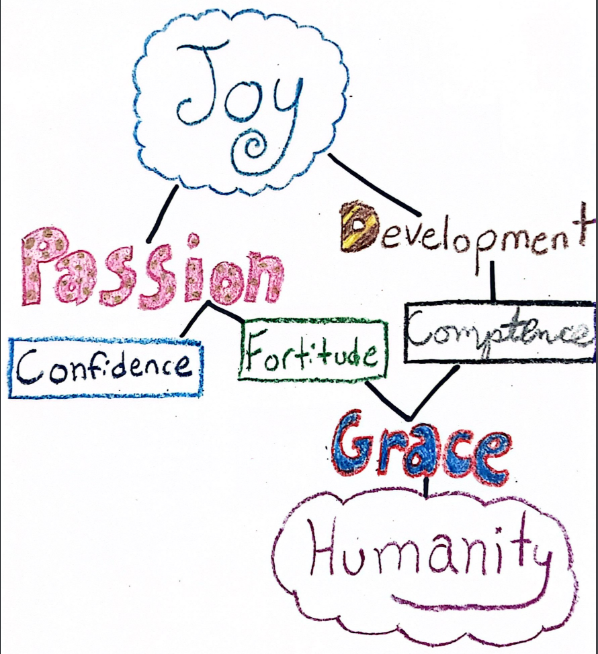 Joy
Passion
Development
Confidence
Fortitude
Comptence
Grace
Humanity